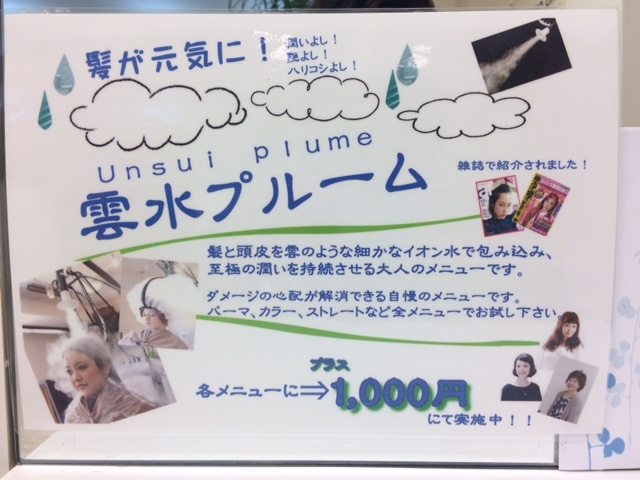 髪が元気に！
潤いよし！
艶よし！
ハリコシよし！
Unsui plume
雲水プルーム
雑誌で紹介されました！
髪と頭皮を雲のような細かなイオン水で包み込み、
至極の潤いを持続させる大人のメニューです。
ダメージの心配が解消できる自慢のメニューです。
パーマ、カラー、ストレートなど全メニューでお試し下さい
プラス
各メニューに⇒1,000円
にて実施中！！